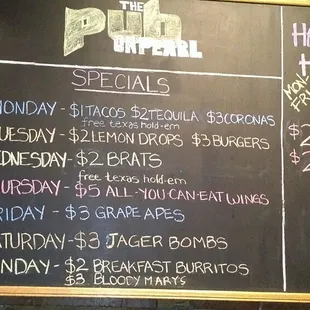 THE
PUB
ON PEARL
SPECIALS
MONDAY - $1 TACOS $2 TEQUILA $3 CORONAS
free texas hold-em
TUESDAY - $2 LEMON DROPS $3 BURGERS
WEDNESDAY - $2 BRATS
free texas hold-em
THURSDAY - $5 ALL-YOU-CAN-EAT WINGS
FRIDAY - $3 GRAPE APES
SATURDAY - $3 JAGER BOMBS
SUNDAY - $2 BREAKFAST BURRITOS
$3 BLOODY MARYS
MON-
FRI
$2
$2